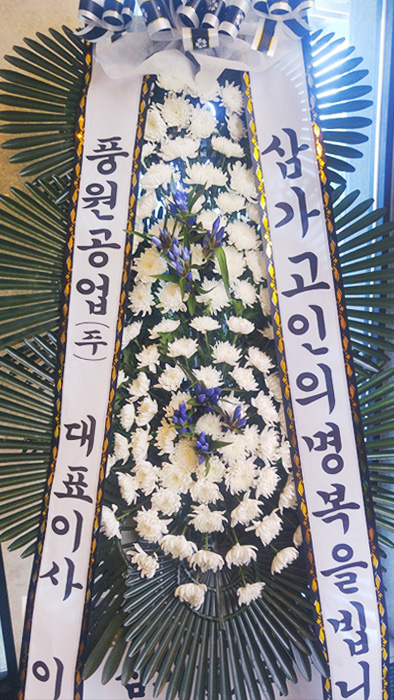 삼가고인의명복을빕니
풍원공업(주) 대표이사 이